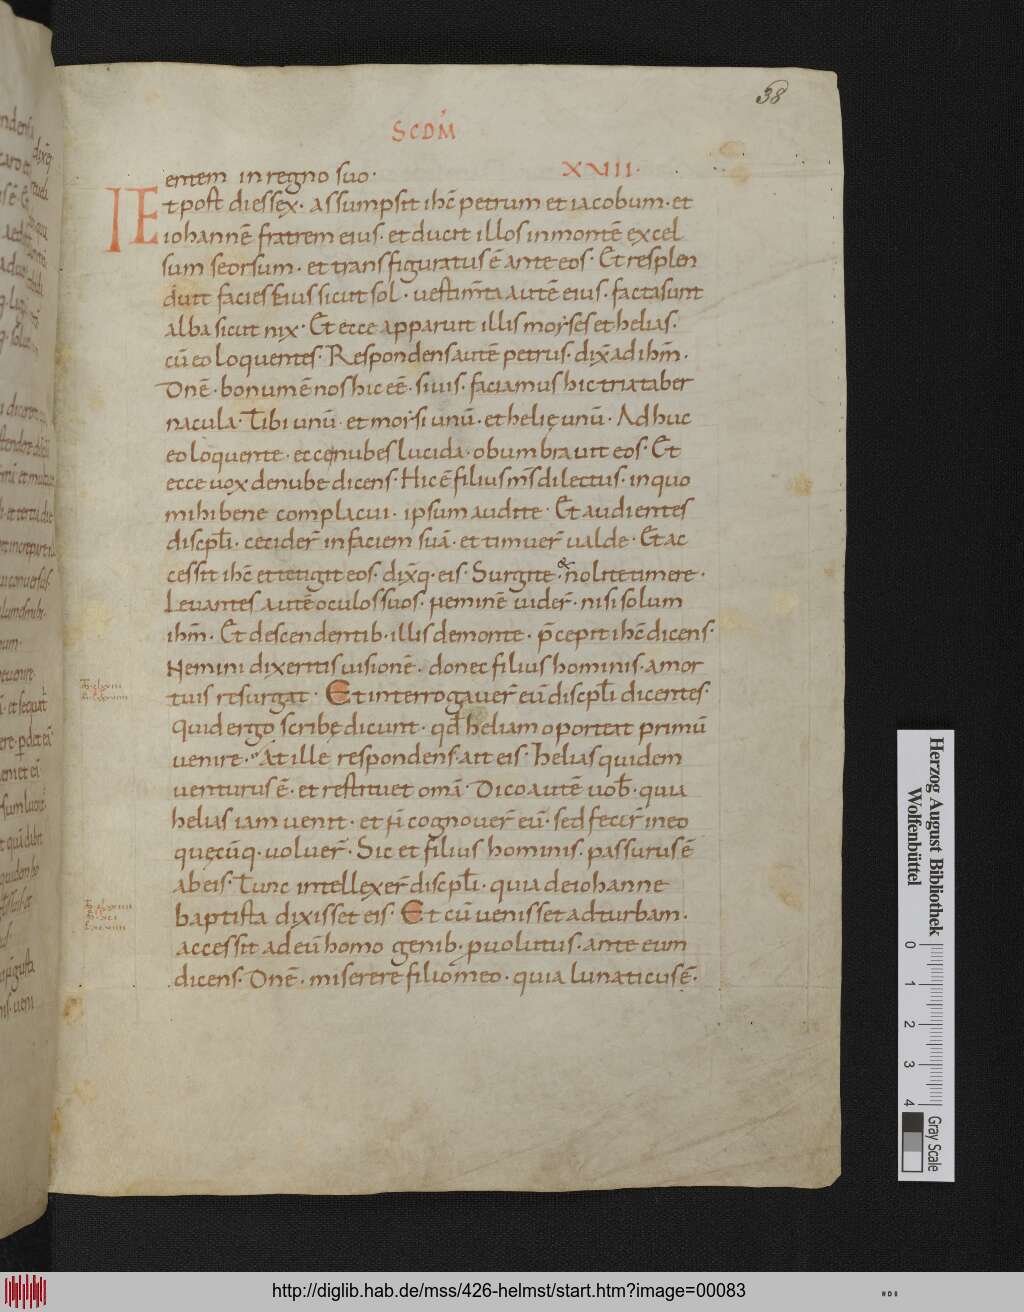 38
SCDM
entem in regno suo · XVIII·
Et post dies sex · assumpsit ihc̄ petrum et iacobum · et
iohannē fratrem eius · et ducit illos in montē excel
sum seorsum · et transfiguratus ē ante eos · Et resplen
duit facies eius sicut sol · uestim̄ta autē eius · facta sunt
alba sicut nix · Et ecce apparuit illis moyses et helias ·
cū eo loquentes · Respondens autē petrus · dix̄ ad ihm̄ ·
Dnē · bonum ē nos hic eē · si uis · faciamus hic tria taber
nacula · Tibi unū · et moysi unū · et helię unū · Adhuc
eo loquente · ecce nubes lucida · obumbrauit eos · Et
ecce uox de nube dicens · Hic ē filius ms̄ dilectus · in quo
mihi bene complacui · ipsum audite · Et audientes
discpl̄i · cecider̄ in faciem suā · et timuer̄ ualde · Et ac
cessit ihc̄ et tetigit eos · dixq · eis · Surgite · & nolite timere ·
Leuantes autē oculos suos · neminē uider̄ · nisi solum
ihm̄ · Et descendentib · illis de monte · p̄cepit ihc̄ dicens ·
Nemini dixeritis uisionē · donec filius hominis · a mor
tuis resurgat · Et interrogauer̄ eū discpl̄i dicentes ·
Quid ergo scribę dicunt · qd̄ heliam oporteat primū
uenire · At ille respondens · ait eis · Helias quidem
uenturus ē · et restituet om̄a · Dico autē uob̄ · quia
helias iam uenit · et n̄ cognouer̄ eū · sed fecer̄ in eo
quęcūq · uoluer̄ · Sic et filius hominis · passurus ē
ab eis · Tunc intellexer̄ discpl̄i · quia de iohanne
baptista dixisset eis · Et cū uenisset ad turbam ·
accessit ad eū homo genib · puolutus · ante eum
dicens · Dnē · miserere filio meo · quia lunaticus ē ·
Herzog August Bibliothek
Wolfenbüttel
0 1 2 3 4
Gray Scale
http://diglib.hab.de/mss/426-helmst/start.htm?image=00083